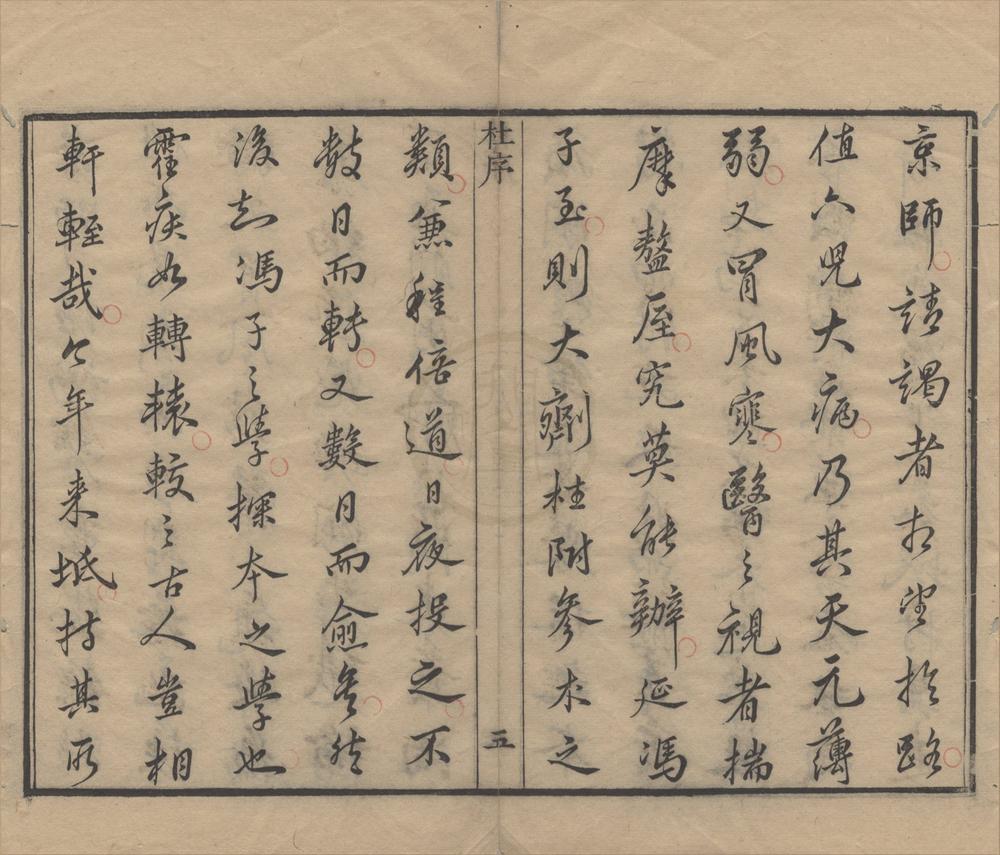 京師請謁者相望於路
值六兒大病乃其天元薄
弱又冒風寒醫之視者揣
摩盩厔究莫能辦延馮
子至則大劑桂附參朮之
杜序
五
類兼程倍道日夜投之不
數日而轉又數日而愈矣然
後知馮子之學探本之學也
霍疾如轉轅較之古人豈相
軒輊哉今年來坻持其所